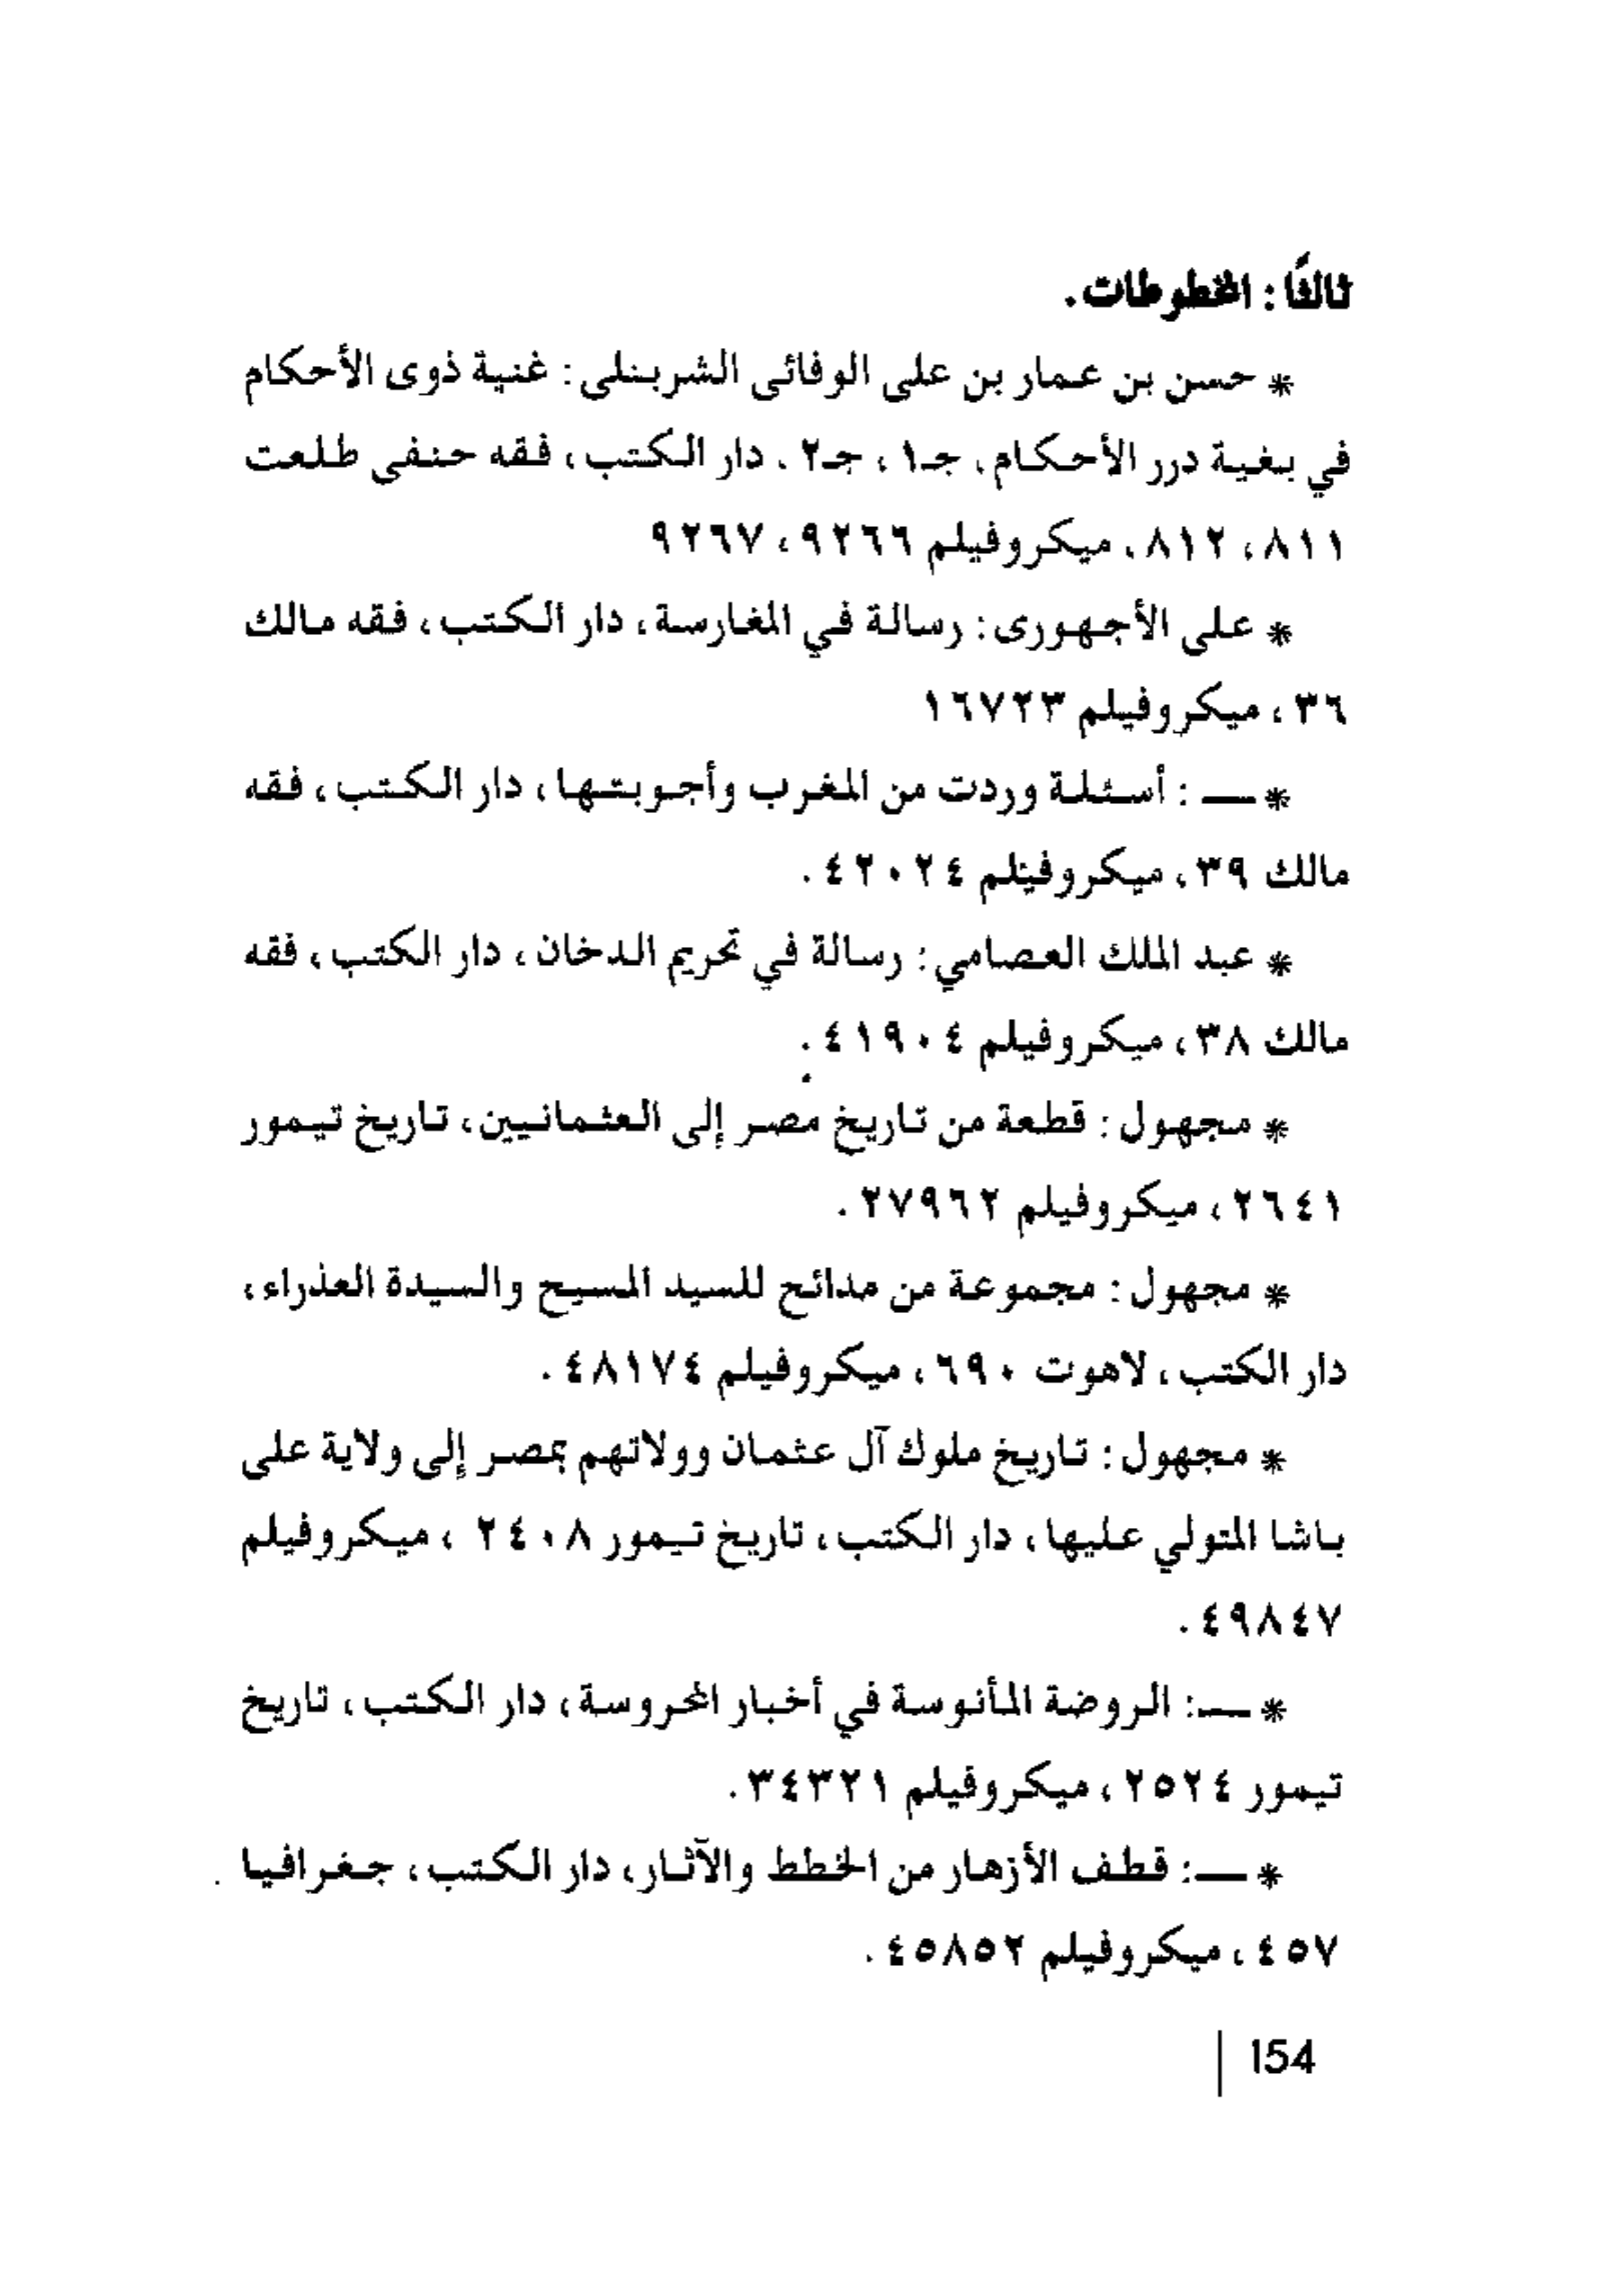 ثالثًا : المخطوطات .
* حسن بن عمار بن على الوفائى الشربنلى : غنية ذوى الأحكام
في بغية درر الأحكام ، جـ١ ، جـ٢ . دار الكتب ، فقه حنفى طلعت
٨١١ ، ٨١٢ ، ميكروفيلم ٩٢٦٦ ، ٩٢٦٧
* على الأجهورى : رسالة في المغارسة ، دار الكتب ، فقه مالك
٣٦ ، ميكروفيلم ١٦٧٢٣
* ــــ : أسئلة وردت من المغرب وأجوبتها ، دار الكتب ، فقه
مالك ٣٩ ، ميكروفيلم ٤٢٠٢٤ .
* عبد الملك العصامي : رسالة في تحريم الدخان ، دار الكتب ، فقه
مالك ٣٨ ، ميكروفيلم ٤١٩٠٤ .
* مجهول : قطعة من تاريخ مصر إلى العثمانيين ، تاريخ تيمور
٢٦٤١ ، ميكروفيلم ٢٧٩٦٢ .
* مجهول : مجموعة من مدائح للسيد المسيح والسيدة العذراء ،
دار الكتب ، لاهوت ٦٩٠ ، ميكروفيلم ٤٨١٧٤ .
* مجهول : تاريخ ملوك آل عثمان وولاتهم بمصر إلى ولاية على
باشا المتولي عليها ، دار الكتب ، تاريخ تيمور ٢٤٠٨ ، ميكروفيلم
٤٩٨٤٧ .
* ــــ : الروضة المأنوسة في أخبار المحروسة ، دار الكتب ، تاريخ
تيمور ٢٥٢٤ ، ميكروفيلم ٣٤٣٢١ .
* ــــ : قطف الأزهار من الخطط والآثار ، دار الكتب ، جغرافيا
٤٥٧ ، ميكروفيلم ٤٥٨٥٢ .
154